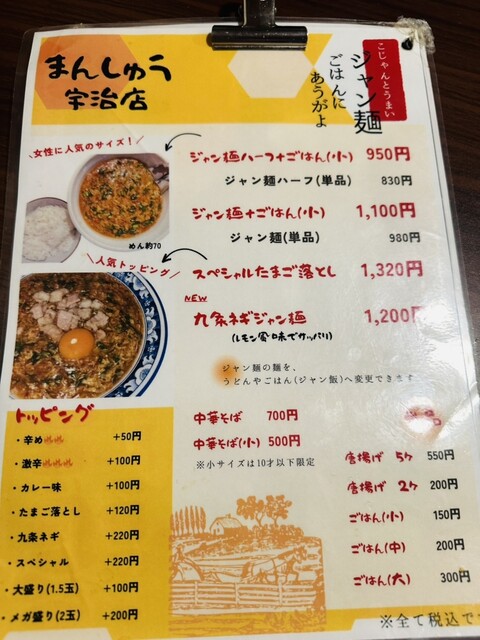 まんしゅう
宇治店
こじゃんとうまい
ジャン麺
ごはんに
あうがよ
女性に人気のサイズ！
めん約70
人気トッピング
ジャン麺ハーフ+ごはん(小) 950円
ジャン麺ハーフ(単品) 830円
ジャン麺+ごはん(小) 1,100円
ジャン麺(単品) 980円
スペシャルたまご落とし 1,320円
NEW
九条ネギジャン麺 1,200円
(レモン風味でサッパリ)
ジャン麺の麺を、
うどんやごはん(ジャン飯)へ変更できます
トッピング
・辛め +50円
・激辛 +100円
・カレー味 +100円
・たまご落とし +120円
・九条ネギ +220円
・スペシャル +220円
・大盛り(1.5玉) +100円
・メガ盛り(2玉) +200円
中華そば 700円
中華そば(小) 500円
※小サイズは10才以下限定
唐揚げ 5ケ 550円
唐揚げ 2ケ 200円
ごはん(小) 150円
ごはん(中) 200円
ごはん(大) 300円
※全て税込で